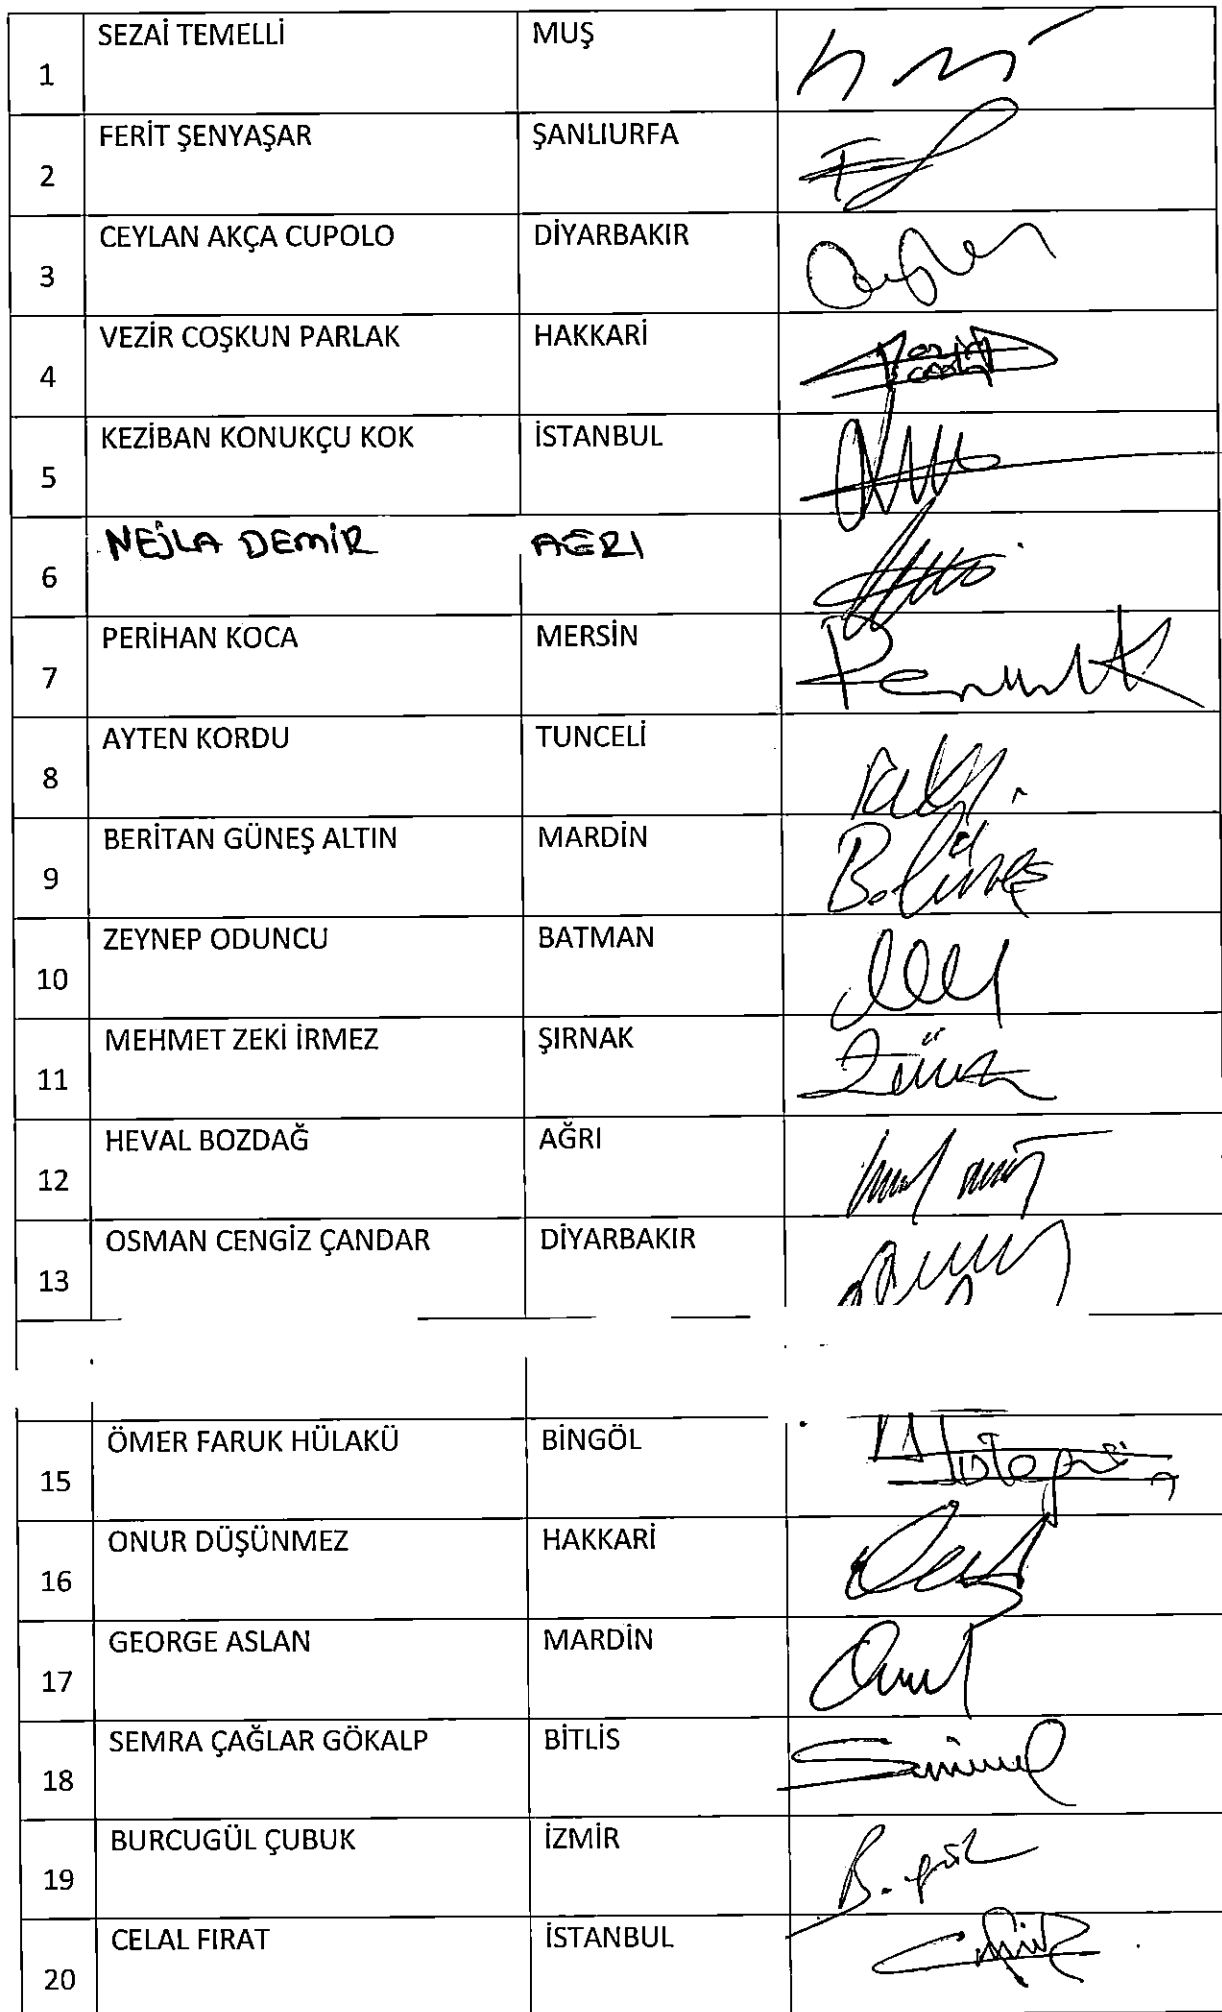 1 SEZAİ TEMELLİ MUŞ
2 FERİT ŞENYAŞAR ŞANLIURFA
3 CEYLAN AKÇA CUPOLO DİYARBAKIR
4 VEZİR COŞKUN PARLAK HAKKARİ
5 KEZİBAN KONUKÇU KOK İSTANBUL
6 NEJLA DEMİR AĞRI
7 PERİHAN KOCA MERSİN
8 AYTEN KORDU TUNCELİ
9 BERİTAN GÜNEŞ ALTIN MARDİN B. Güneş
10 ZEYNEP ODUNCU BATMAN
11 MEHMET ZEKİ İRMEZ ŞIRNAK
12 HEVAL BOZDAĞ AĞRI
13 OSMAN CENGİZ ÇANDAR DİYARBAKIR
15 ÖMER FARUK HÜLAKÜ BİNGÖL
16 ONUR DÜŞÜNMEZ HAKKARİ
17 GEORGE ASLAN MARDİN
18 SEMRA ÇAĞLAR GÖKALP BİTLİS
19 BURCUGÜL ÇUBUK İZMİR B. gül
20 CELAL FIRAT İSTANBUL